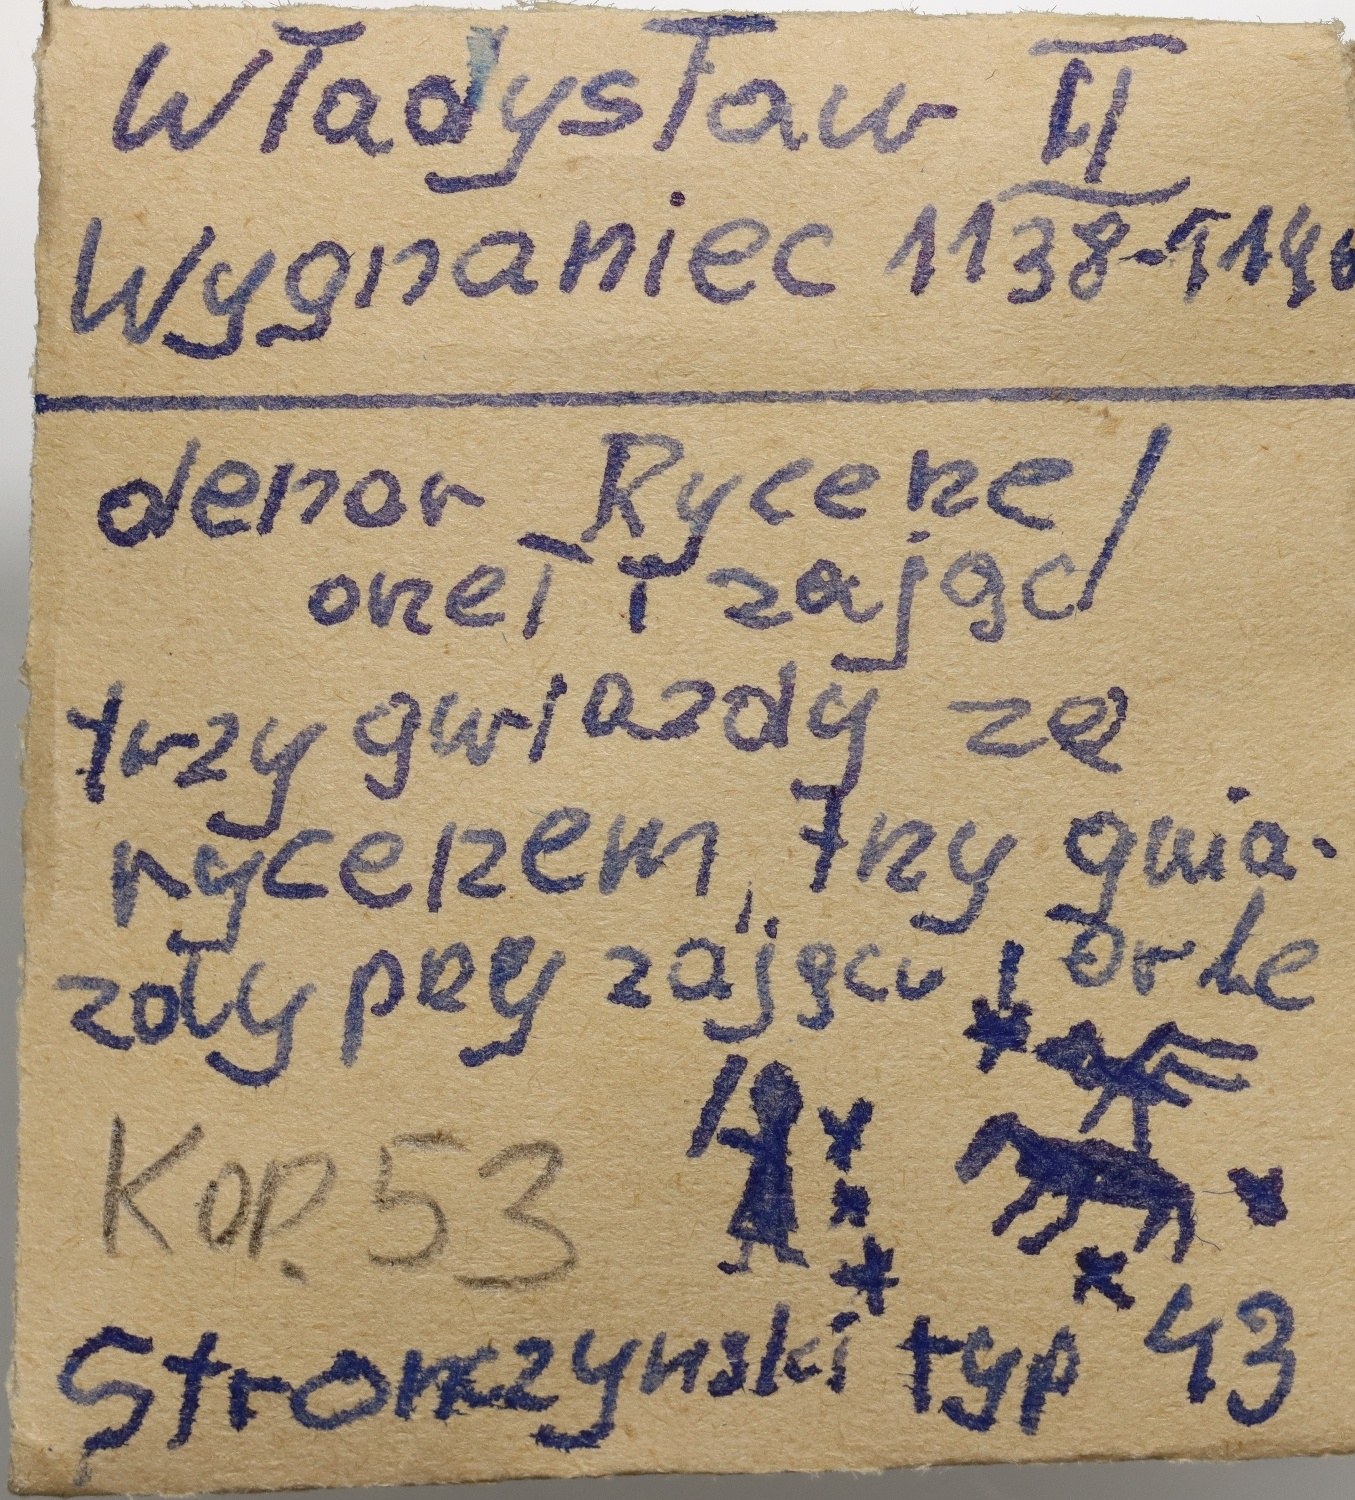 Władysław II
Wygnaniec 1138-1146
denar Rycerze/
orzeł i zając
trzy gwiazdy ze
rycerzem, trzy gwia-
zdy przy zającu i Orle
Kop. 53
Stronczynski typ 43